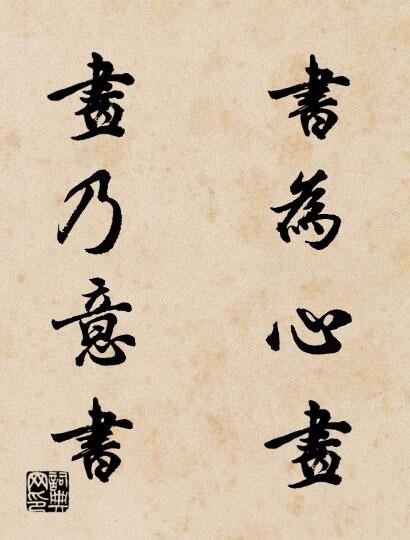 書為心畫
畫乃意書
詞典網印